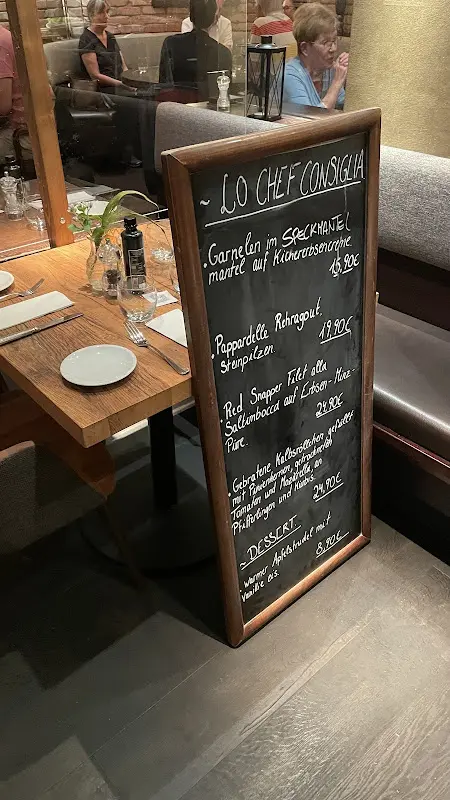 ~ LO CHEF CONSIGLIA
• Garnelen im SPECKMANTEL
mantel auf Kichererbsencreme
15,90€
• Pappardelle Rehragout,
Steinpilzen. 19,90€
• Red Snapper Filet alla
Saltimbocca auf Erbsen-Minz-
Püre. 24,90€
• Gebratene Kalbsröllchen gefüllet
mit Pinienkernen, getrockneten
Tomaten und Mozzarella, an
Pfifferlingen und Kürbis.
24,90€
~ DESSERT.
• warmer Apfelstrudel mit
Vanille eis. 8,90€